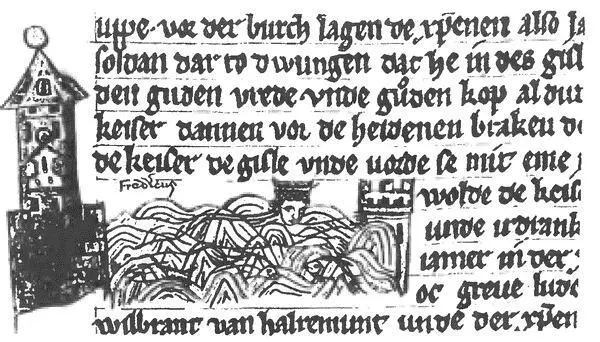 uppe · vor der burch lagen de xp̄enen also la
soldan dar to dwungen dat he in des gisl
den guden vrede vnde gůden kop al dur
keiser dannen vor de heidenen braken de
de keiser de gisle vnde vorde se mit eme
Fredericus
wolde de keis
unde irdrank
iamer in der
oc greve lude
wilbrant van halremunt unde der xp̄en